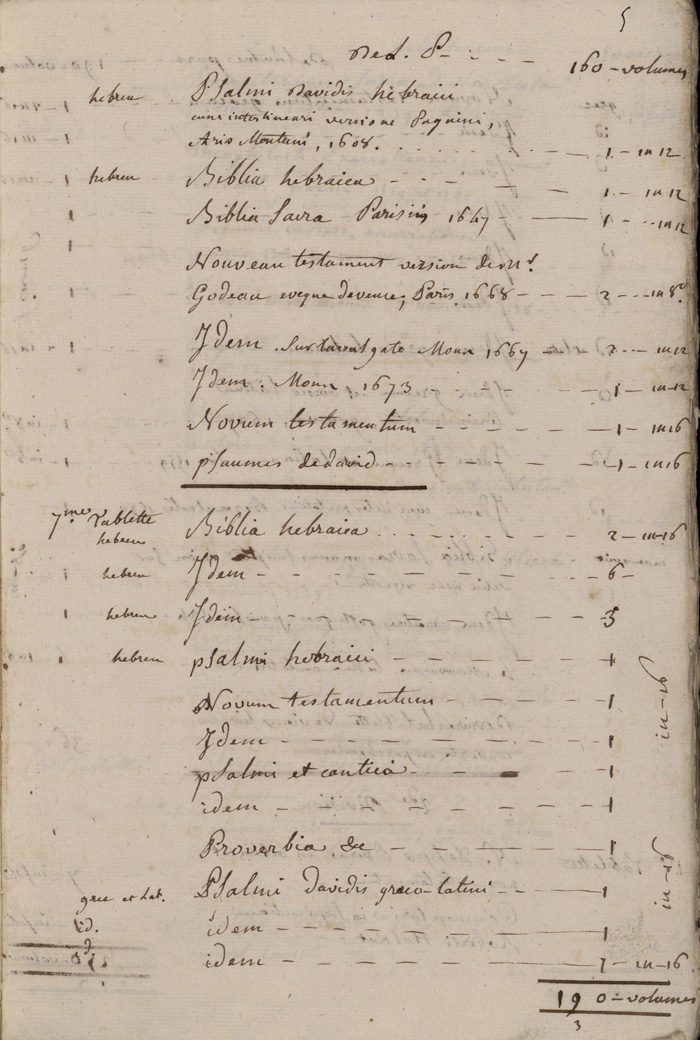 5
160 - volumes
hebreu Psalmi Davidis hebraici
cum interlineari versione Pagnini,
Ariæ Montani, 1608. 1 - in 12
hebreu Biblia hebraica 1 - in 12
Biblia Sacra Parisiis 1647 1 - in 12
Nouveau testament version de mr.
Godeau eveque de vence, Paris 1668 2 - in 8°
Idem Mons 1667 2 - in 12
Idem. Mons 1673 1 - in 12
Novum testamentum 1 - in 16
psaumes de david 1 - in 16
7me. Tablette
hebreu Biblia hebraica 2 - in 16
hebreu Idem 6
hebreu Idem 5
hebreu psalmi hebraici 1
Novum testamentum 1
in-16
Idem 1
psalmi et cantica 1
idem 1
Proverbia &c 1
in-16
grec et Lat. Psalmi Davidis græco-latini 1
id. idem 1
id. idem 1 - in 16
190 - volumes
3